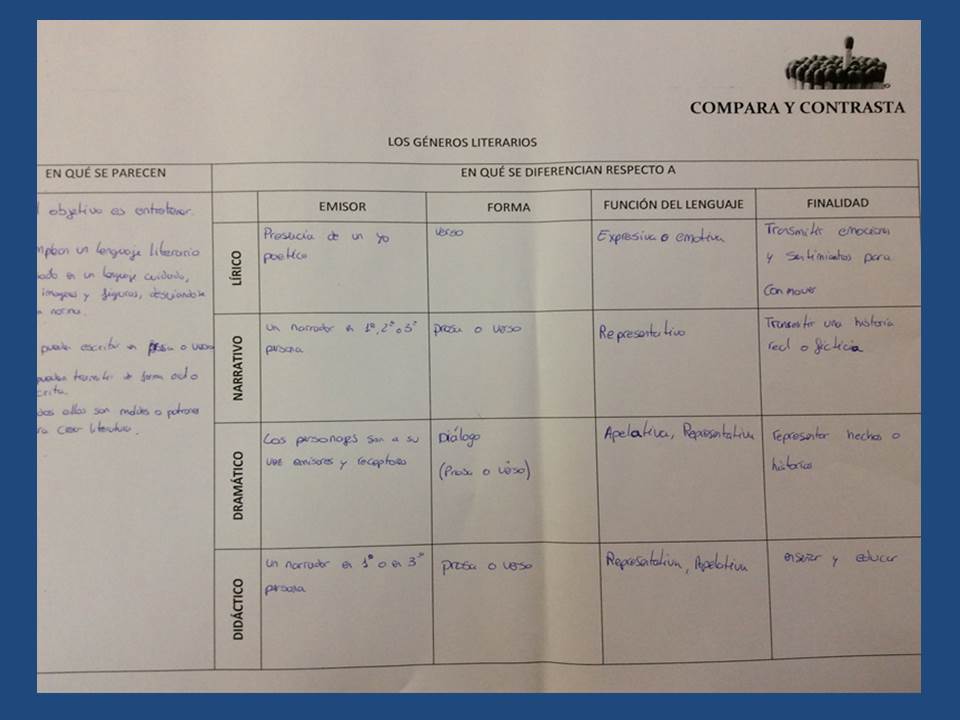 COMPARA Y CONTRASTA
LOS GÉNEROS LITERARIOS
EN QUÉ SE PARECEN
EN QUÉ SE DIFERENCIAN RESPECTO A
objetivo es entretener.
un lenguaje literario
en un lenguaje cuidado,
imagenes y figuras,
norma.
escribir en prosa o verso
de forma oral o
ellos son moldes o patrones
crear literatura.
EMISOR
FORMA
FUNCIÓN DEL LENGUAJE
FINALIDAD
LÍRICO
Presencia de un yo
poetico
verso
Expresiva o emotiva
Transmitir emociones
y sentimientos para
conmover
NARRATIVO
un narrador en 1ª, 2ª o 3ª
persona
prosa o verso
Representativo
Transmitir una historia
real o ficticia
DRAMÁTICO
Los personajes son a su
vez emisores y receptores
Diálogo
(Prosa o verso)
Apelativa, Representativa
representar hechos o
historias
DIDÁCTICO
un narrador en 1ª o en 3ª
persona
prosa o verso
Representativa, Apelativa
enseñar y educar